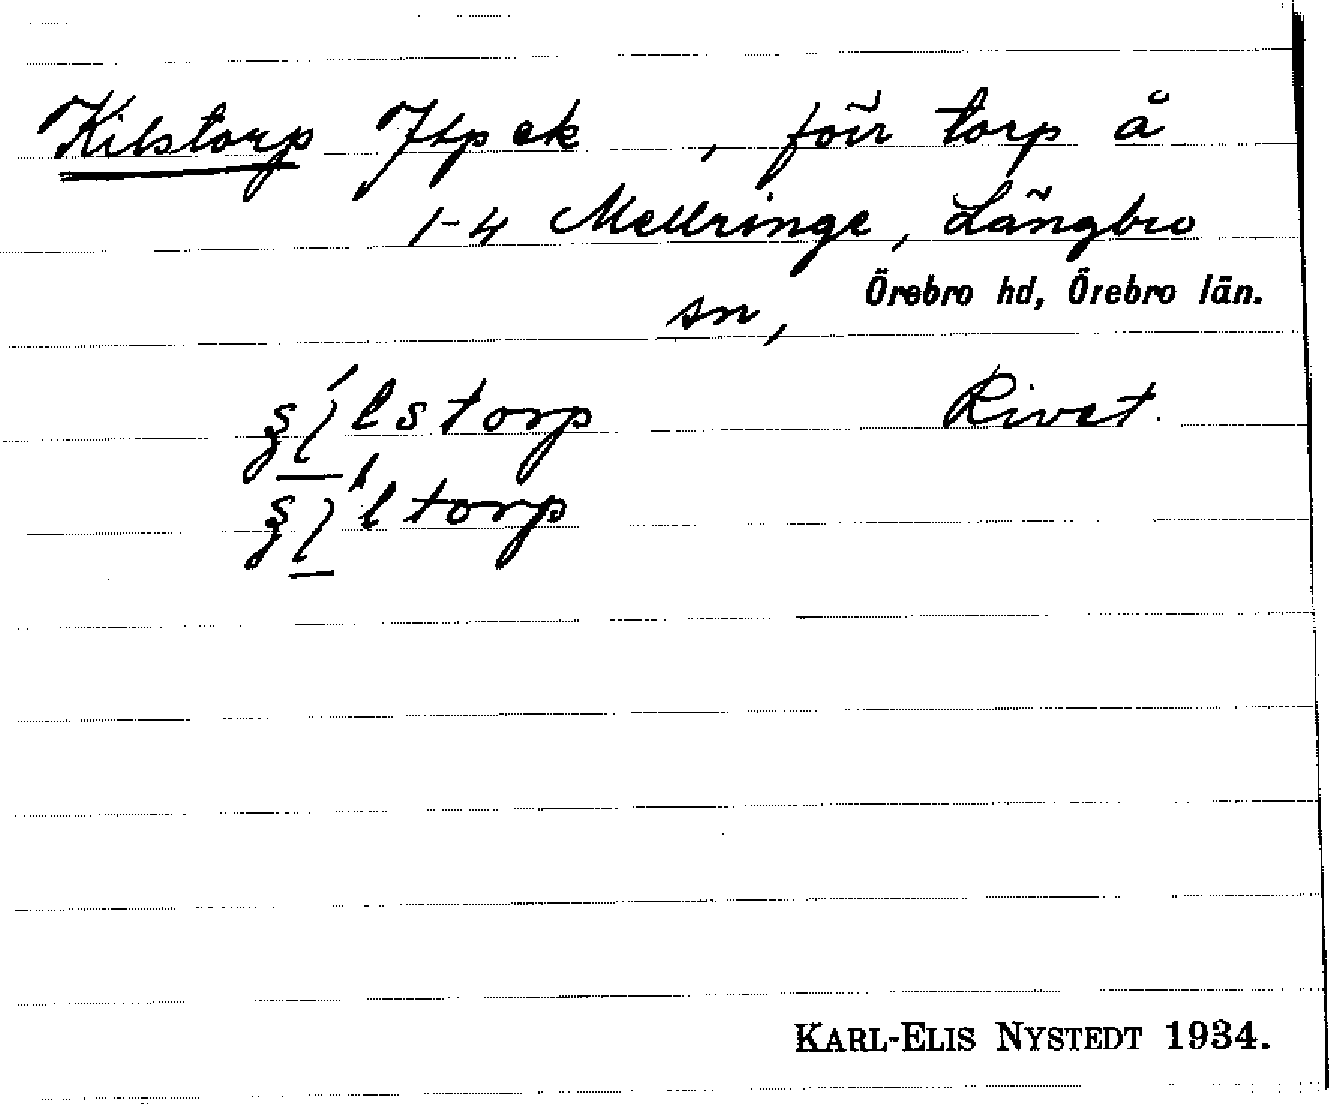 Kilstorp Jtp ek , förr torp å
1-4 Mellringe, Längbro
sn, Örebro hd, Örebro län.
lstorp Rivet.
ltorp
KARL-ELIS NYSTEDT 1934.